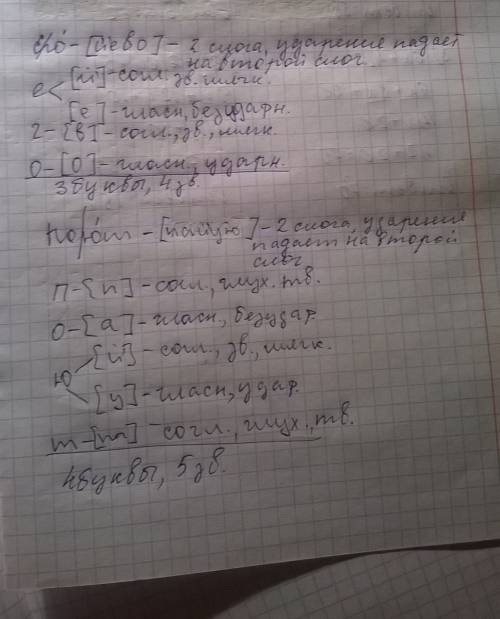 его́ - [йево] - 2 слога, ударение падает
на второй слог.
е < [й] - согл., зв. мягк.
[е] - гласн., безударн.
г - [в] - согл., зв., мягк.
о - [о] - гласн., ударн.
3 буквы, 4 зв.
- 2 слога, ударение
падает на второй
слог
п - [п] - согл., глух. тв.
о - [а] - гласн., безудар.
ю < [й] - согл., зв., мягк.
[у] - гласн., удар.
т - [т] - согл., глух., тв.
4 буквы, 5 зв.